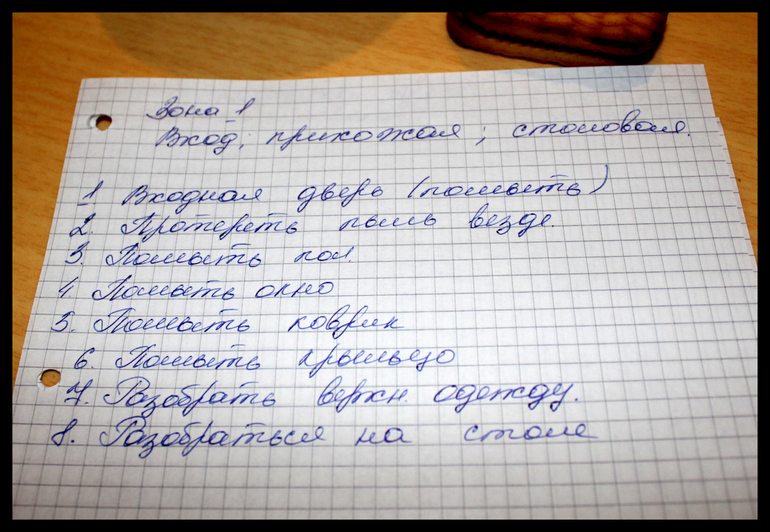 Зона 1
Вход; прихожая; столовая.
1 Входная дверь (помыть)
2. Протереть пыль везде.
3. Помыть пол.
4. Помыть окно
5. Помыть коврик
6. Помыть крыльцо
7. Разобрать верхн. одежду.
8. Разобраться на столе